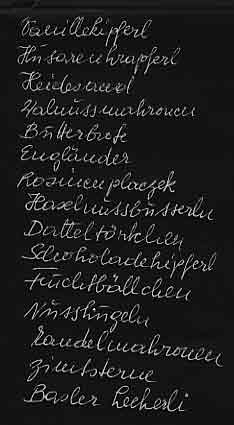 Vanillekipferl
Husarenkrapferl
Heidesand
Walnussmakronen
Butterbrote
Engländer
Rosinenplaczek
Haselnussbusserln
Datteltörtchen
Schokoladekipferl
Früchtbällchen
Nusskugeln
Mandelmakronen
Zimtsterne
Basler Leckerli